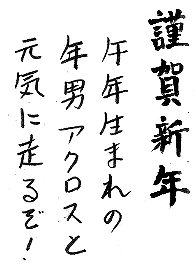 謹賀新年
午年生まれの
年男アクロスと
元気に走るぞ！